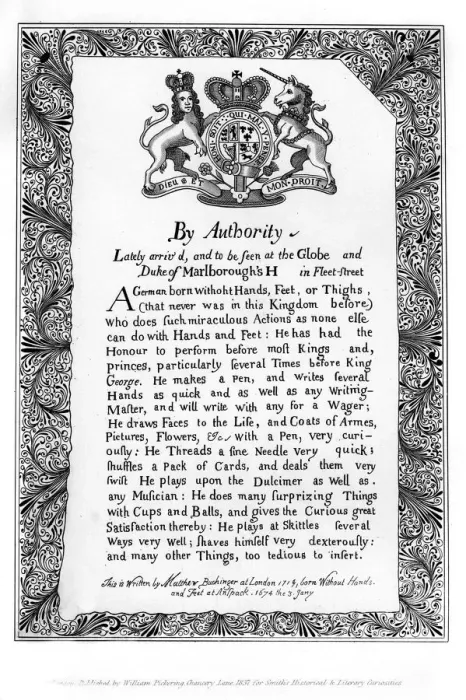 HONI·SOIT·QUI·MAL·Y·PENSE
DIEU ET MON·DROIT
By Authority
Lately arriv'd, and to be seen at the Globe and
Duke of Marlborough's H in Fleet-street
A German born withoht Hands, Feet, or Thighs,
(that never was in this Kingdom before)
Who does such miraculous Actions as none else
can do with Hands and Feet: He has had the
Honour to perform before most Kings and,
princes, particularly several Times before King
George. He makes a Pen, and Writes several
Hands as quick and as Well as any Writing-
Master, and will write with any for a Wager;
He draws Faces to the Life, and Coats of Armes,
Pictures, Flowers, &c. with a Pen, very curi-
ously: He Threads a fine Needle very quick;
shuffles a Pack of Cards, and deals them very
swift He plays upon the Dulcimer as Well as.
any Musician: He does many surprizing Things
with Cups and Balls, and gives the Curious great
Satisfaction thereby: He plays at Skittles several
Ways very Well; shaves himself very dexterously:
and many other Things, too tedious to insert.
This is Written by Matthew Buchinger at London 1714, born Without Hands.
and Feet at Anspack. 1674 the 3. Jany
Published, by William Pickering, Chancery Lane, 1837 for Smith's Historical & Literary Curiosities